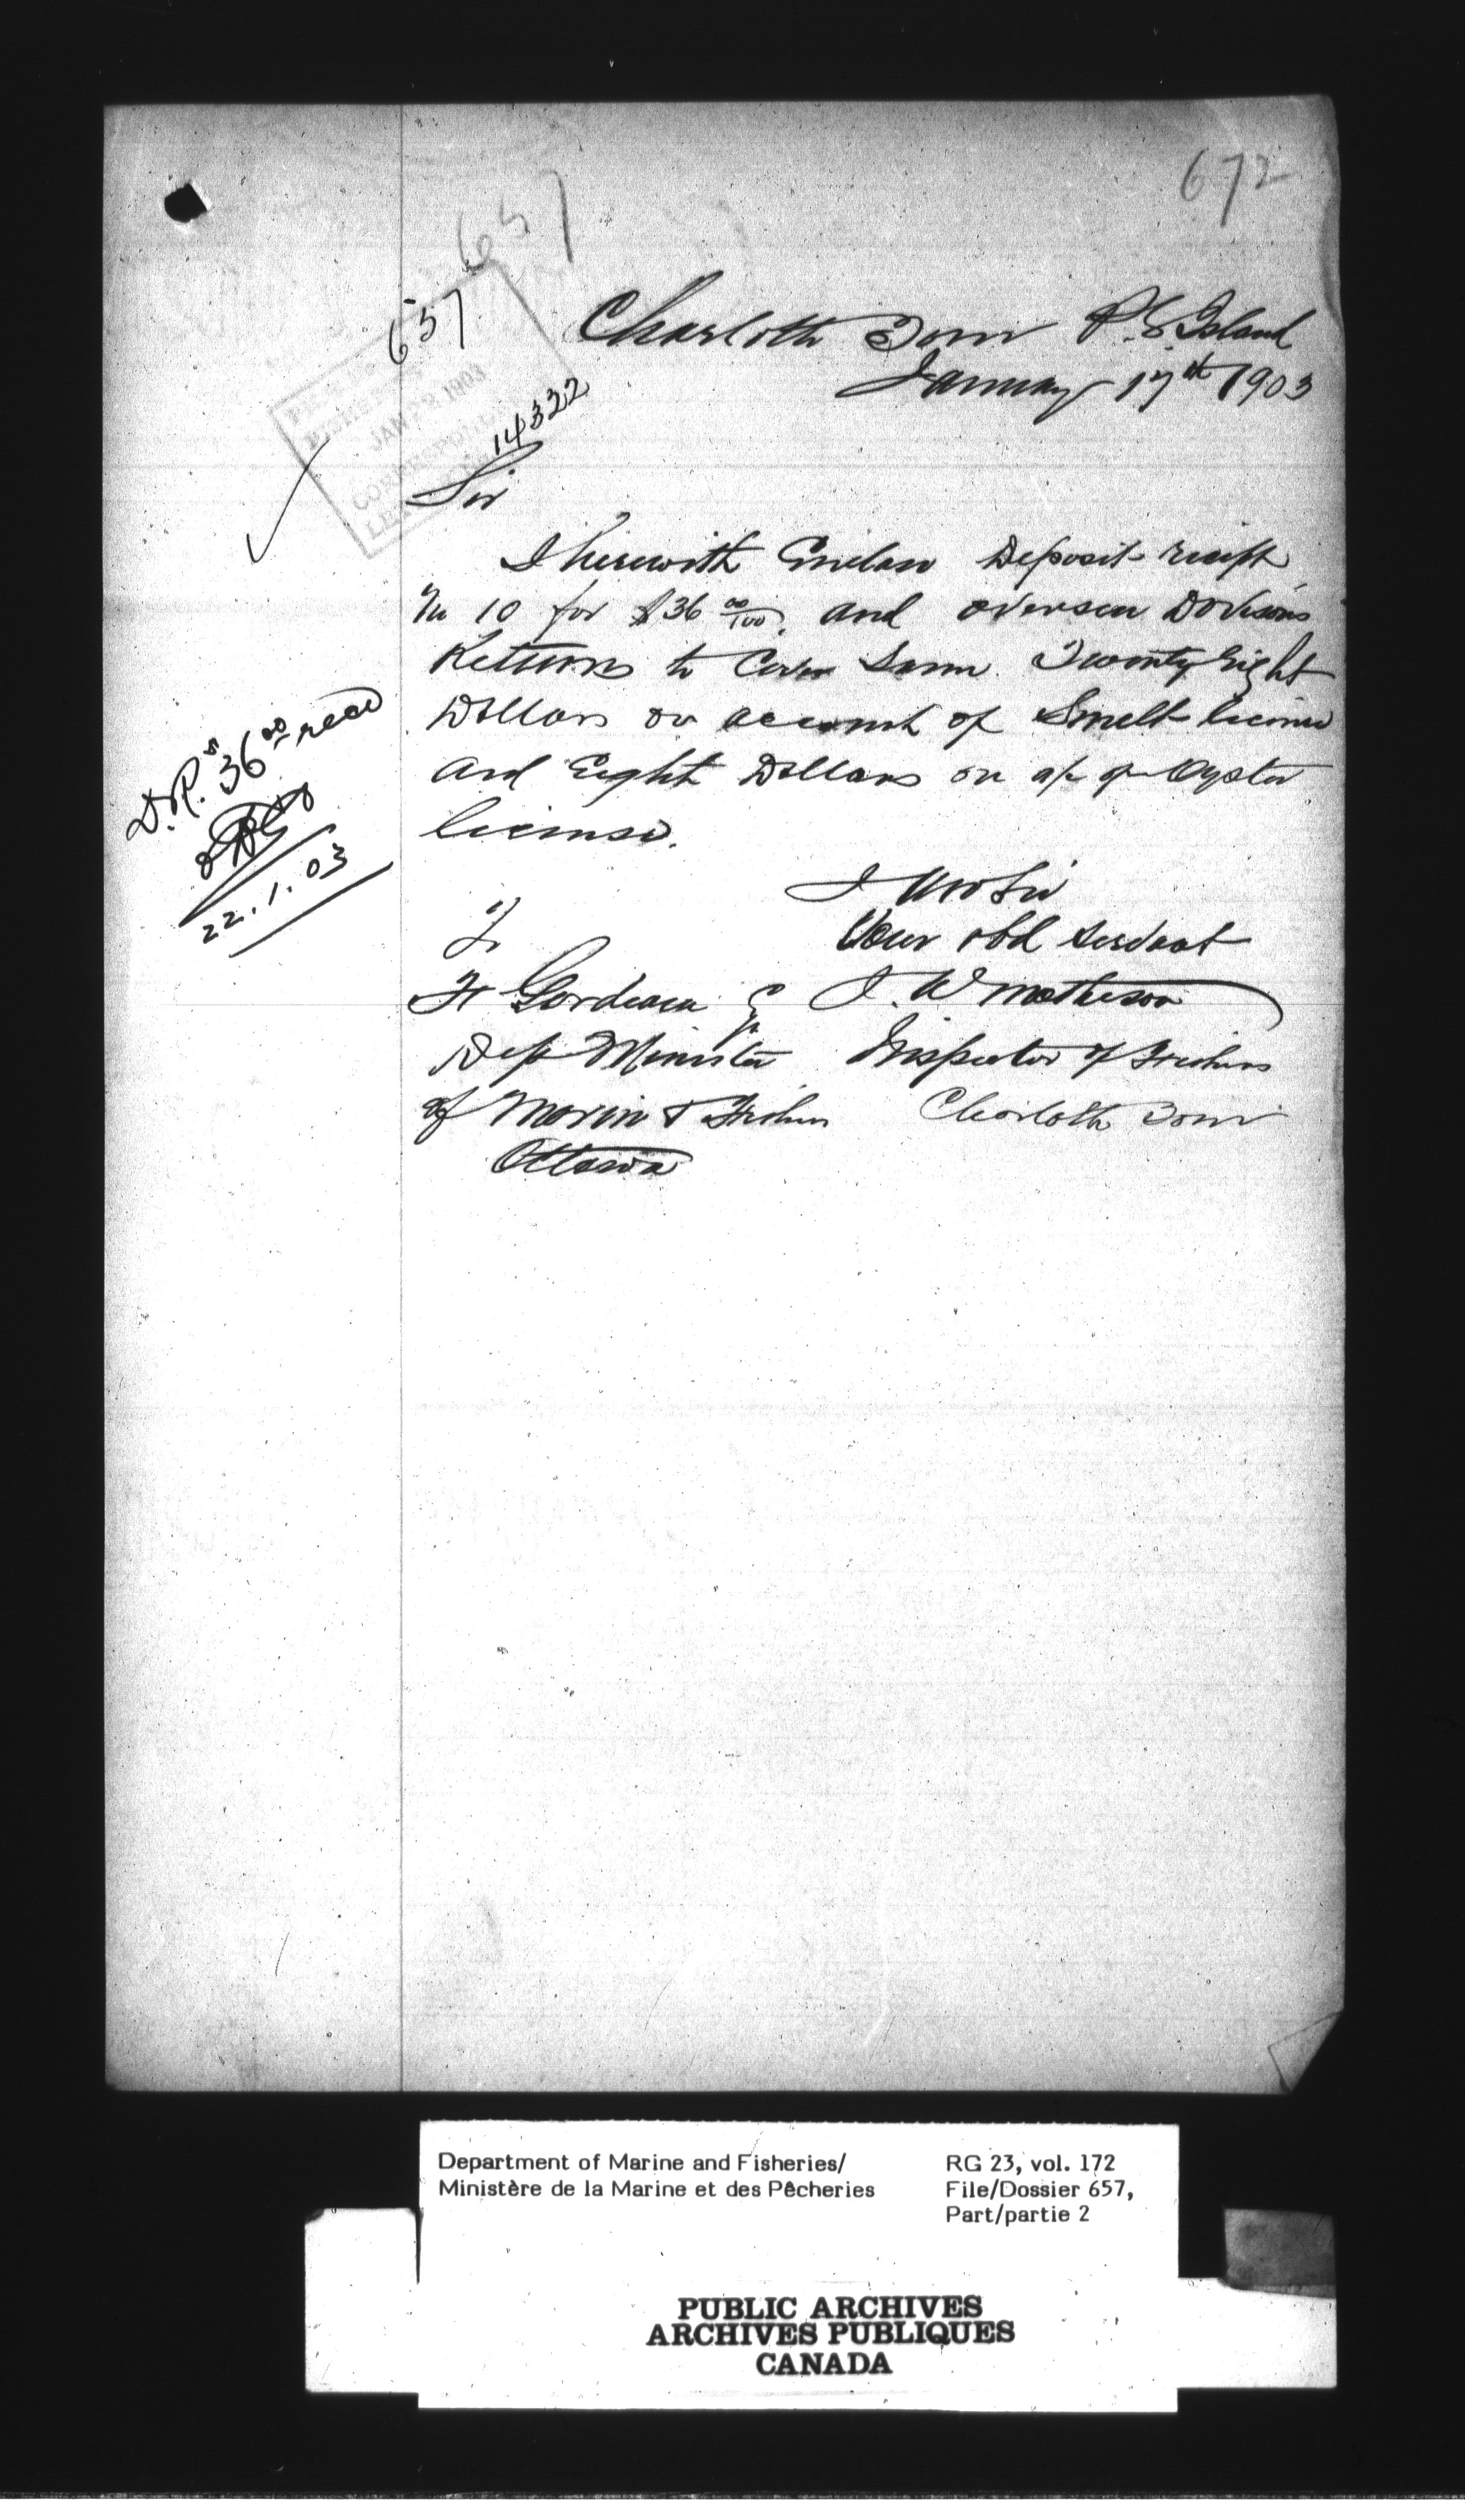 672
657
657
Charlotte Town P. E. Island
January 17th 1903
JAN 22 1903
14322
Sir
I herewith Enclose Deposit receipt
No 10 for $36 00/100, and overseer Davisons
Returns to Cover Same. Twenty Eight
Dollars on account of Smelt license
and Eight Dollars on a/c of Oyster
license.
D.R. $36 00 recd
22.1.03
I am Sir
Your obd Servant
J. W Matheson
Inspector of Fisheries
Charlotte Town
To
F Gordeau Esqr
Dep Minister
of Marin & Fisheries
Ottawa
Department of Marine and Fisheries/
Ministère de la Marine et des Pêcheries
RG 23, vol. 172
File/Dossier 657,
Part/partie 2
PUBLIC ARCHIVES
ARCHIVES PUBLIQUES
CANADA